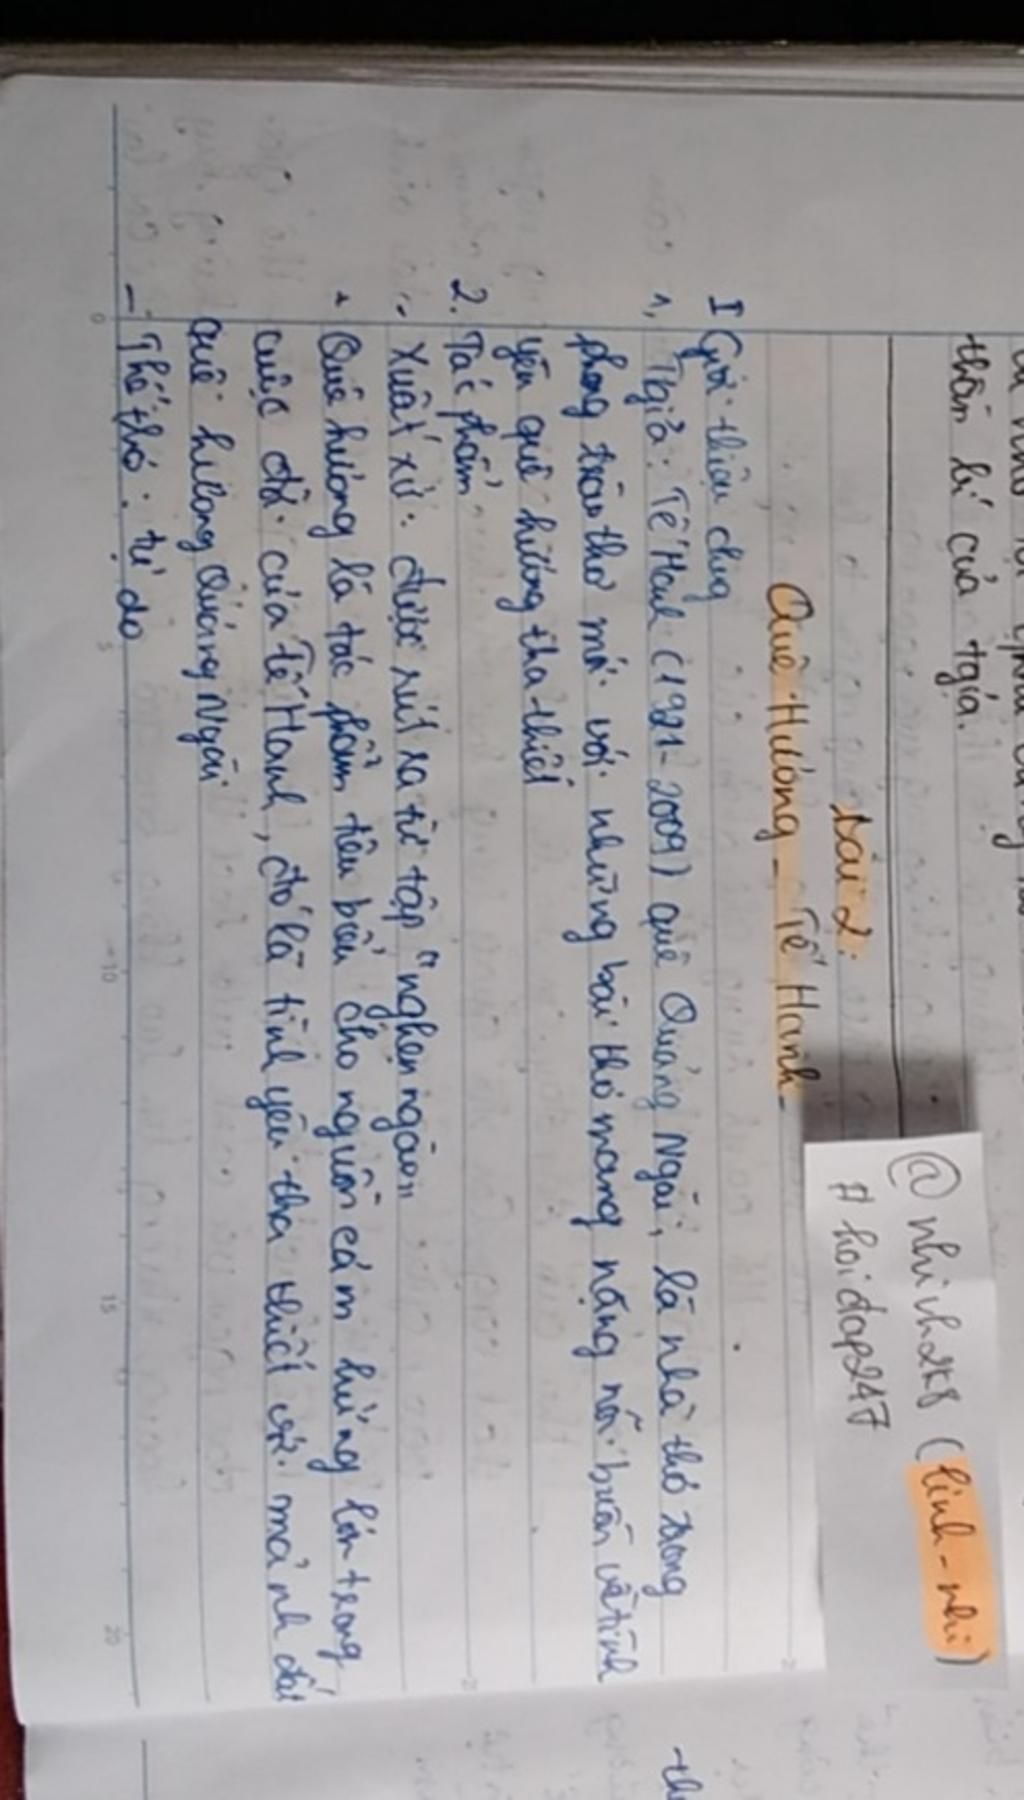 thân lí của tgía.
@nhinh2k8 (linh-nhi)
#hoidap247
bài 2:
Quê Hương - Tế Hanh -
I Giới thiệu chug
1, Tgiả: Tế Hanh (1921-2009) quê Quảng Ngãi, là nhà thơ trong
phong trào thơ mới với những bài thơ mang nặng nỗi buồn và tình
yêu quê hương tha thiết
2. Tác phẩm
- Xuất xứ: được rút ra từ tập "nghẹn ngào"
+ Quê hương là tác phẩm tiêu biểu cho nguồn cảm hứng lớn trong
cuộc đời của Tế Hanh, đó là tình yêu tha thiết với mảnh đất
quê hương Quảng Ngãi
- Thể thơ: tự do